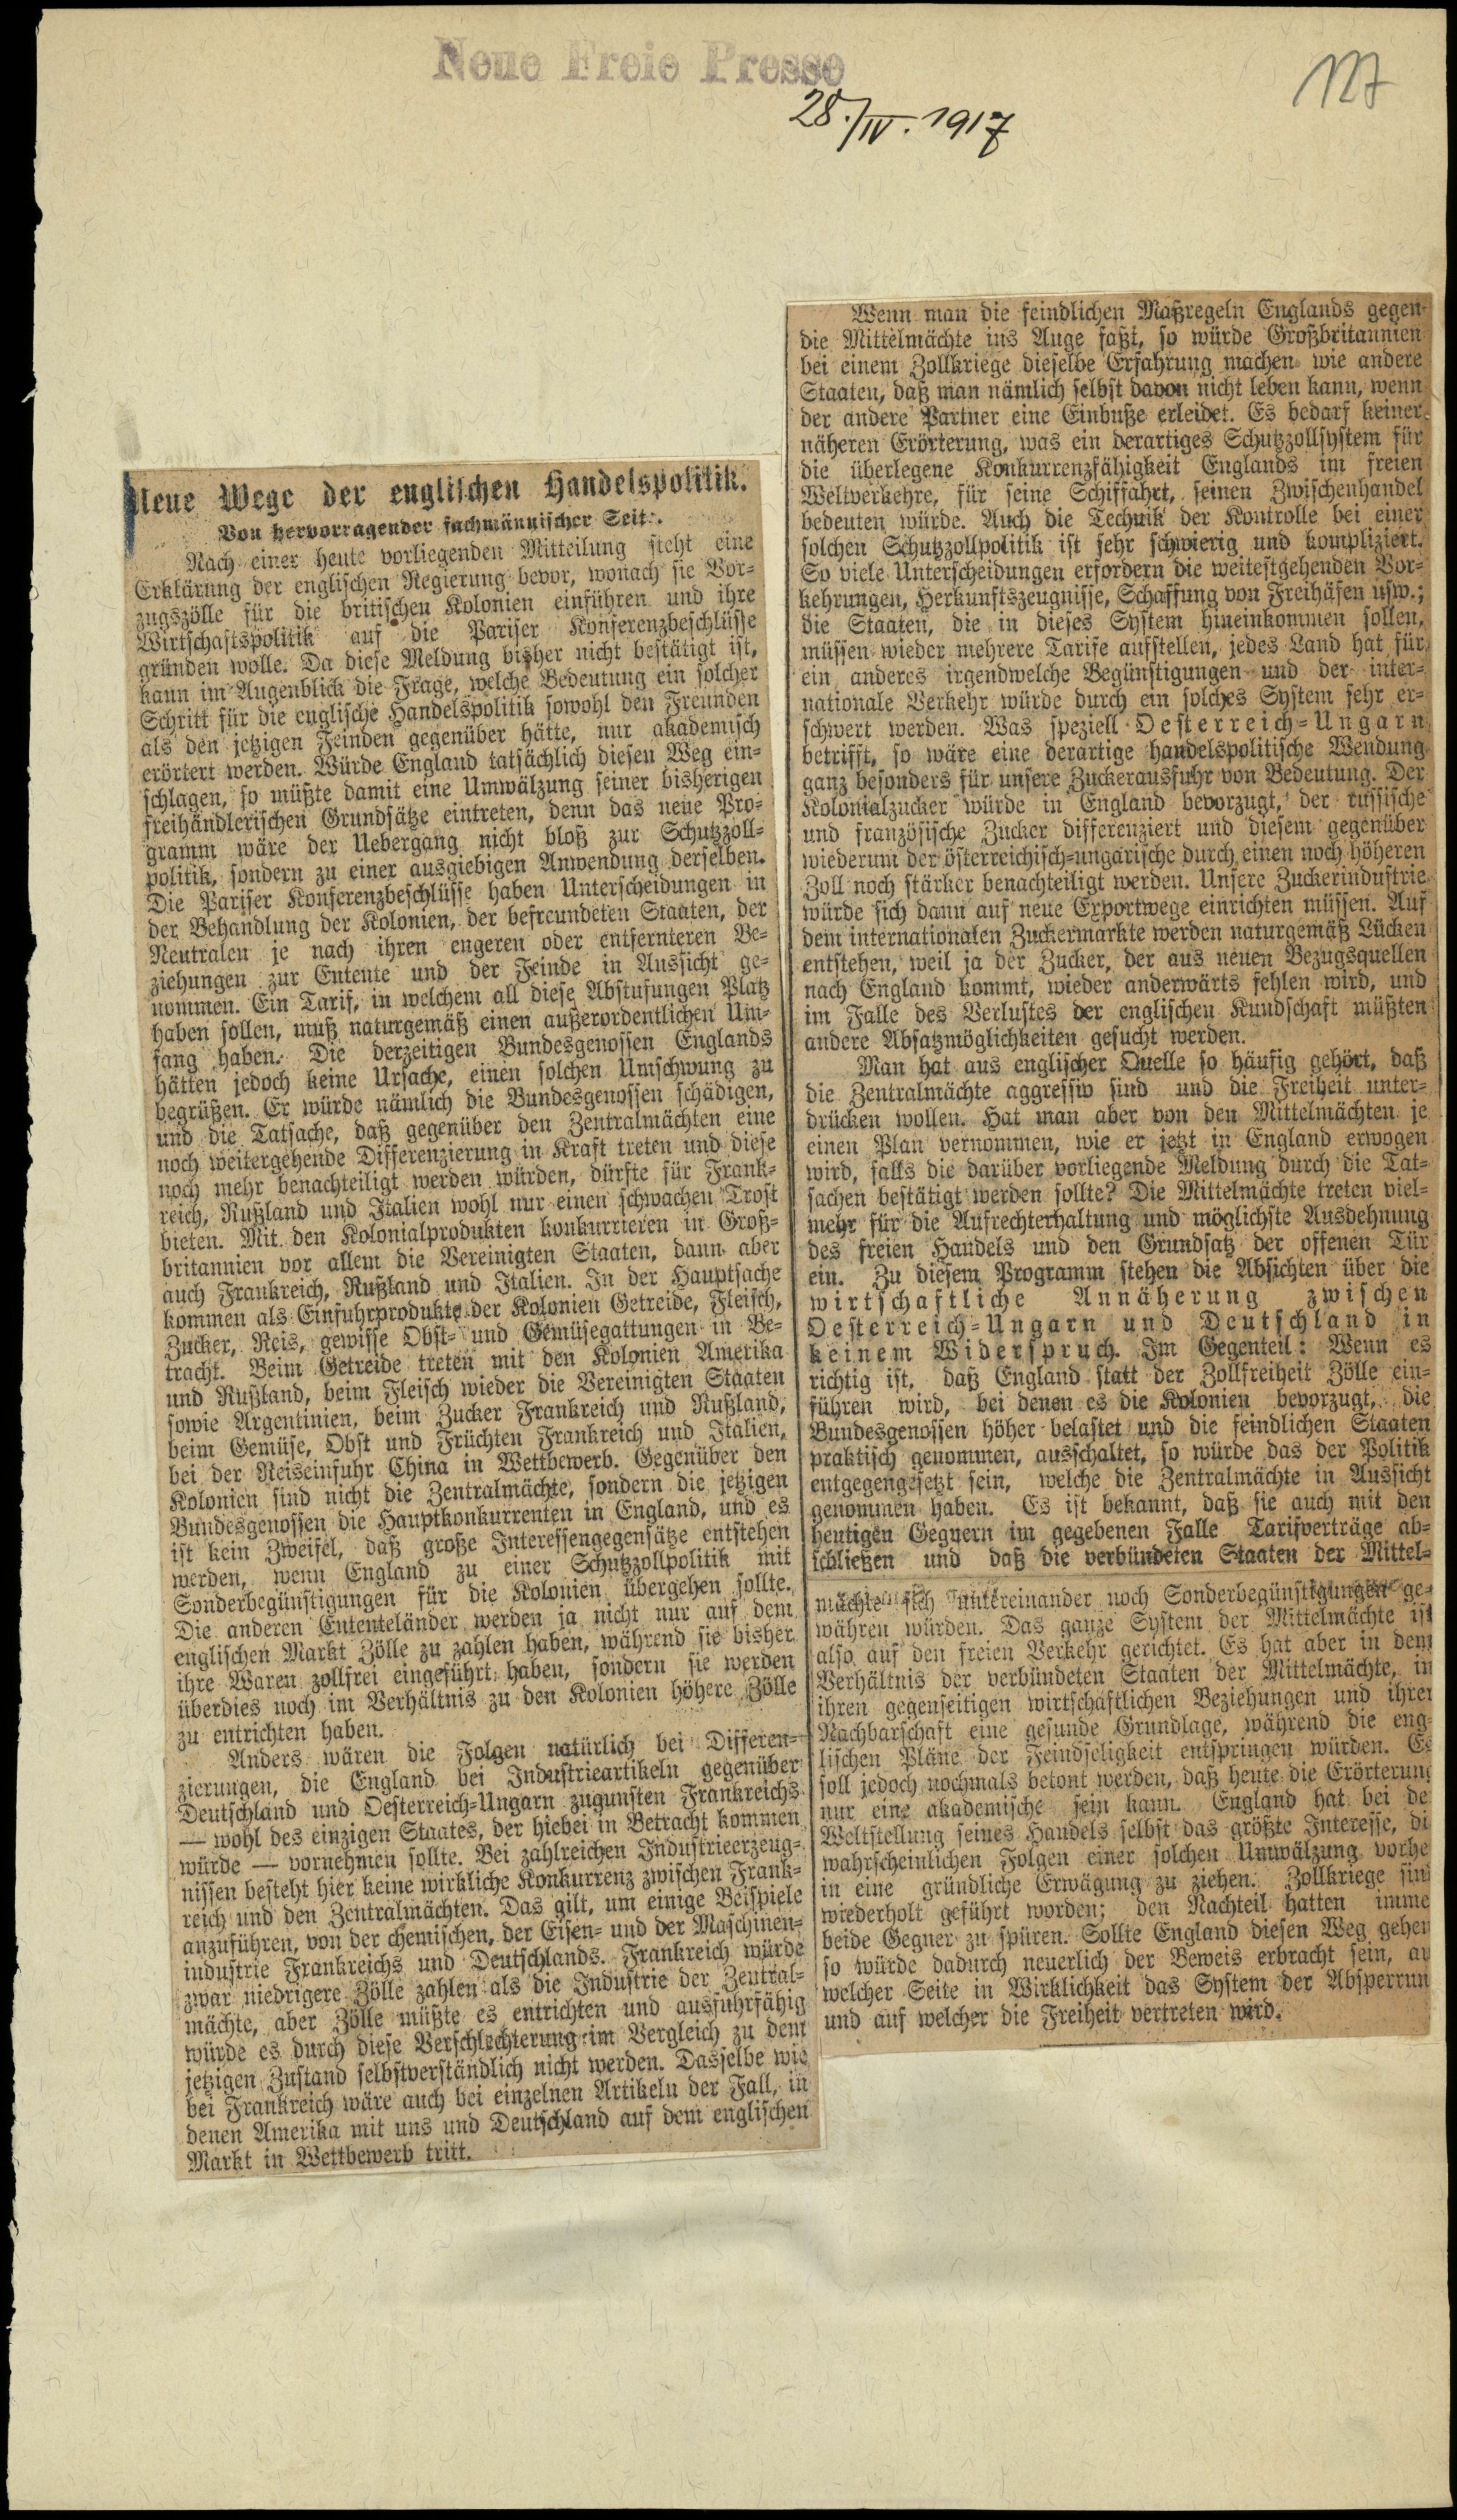 Neue Freie Presse
28./IV. 1917
127
Neue Wege der englischen Handelspolitik.
Von hervorragender fachmännischer Seite.
Nach einer heute vorliegenden Mitteilung steht eine
Erklärung der englischen Regierung bevor, wonach sie Vor-
zugszölle für die britischen Kolonien einführen und ihre
Wirtschaftspolitik auf die Pariser Konferenzbeschlüsse
gründen wolle. Da diese Meldung bisher nicht bestätigt ist,
kann im Augenblick die Frage, welche Bedeutung ein solcher
Schritt für die englische Handelspolitik sowohl den Freunden
als den jetzigen Feinden gegenüber hätte, nur akademisch
erörtert werden. Würde England tatsächlich diesen Weg ein-
schlagen, so müßte damit eine Umwälzung seiner bisherigen
freihändlerischen Grundsätze eintreten, denn das neue Pro-
gramm wäre der Uebergang nicht bloß zur Schutzzoll-
politik, sondern zu einer ausgiebigen Anwendung derselben.
Die Pariser Konferenzbeschlüsse haben Unterscheidungen in
der Behandlung der Kolonien, der befreundeten Staaten, der
Neutralen je nach ihren engeren oder entfernteren Be-
ziehungen zur Entente und der Feinde in Aussicht ge-
nommen. Ein Tarif, in welchem all diese Abstufungen Platz
haben sollen, muß naturgemäß einen außerordentlichen Um-
fang haben. Die derzeitigen Bundesgenossen Englands
hätten jedoch keine Ursache, einen solchen Umschwung zu
begrüßen. Er würde nämlich die Bundesgenossen schädigen,
und die Tatsache, daß gegenüber den Zentralmächten eine
noch weitergehende Differenzierung in Kraft treten und diese
noch mehr benachteiligt werden würden, dürfte für Frank-
reich, Rußland und Italien wohl nur einen schwachen Trost
bieten. Mit den Kolonialprodukten konkurrieren in Groß-
britannien vor allem die Vereinigten Staaten, dann aber
auch Frankreich, Rußland und Italien. In der Hauptsache
kommen als Einfuhrprodukte der Kolonien Getreide, Fleisch,
Zucker, Reis, gewisse Obst- und Gemüsegattungen in Be-
tracht. Beim Getreide treten mit den Kolonien Amerika
und Rußland, beim Fleisch wieder die Vereinigten Staaten
sowie Argentinien, beim Zucker Frankreich und Rußland,
beim Gemüse, Obst und Früchten Frankreich und Italien,
bei der Reiseinfuhr China in Wettbewerb. Gegenüber den
Kolonien sind nicht die Zentralmächte, sondern die jetzigen
Bundesgenossen die Hauptkonkurrenten in England, und es
ist kein Zweifel, daß große Interessengegensätze entstehen
werden, wenn England zu einer Schutzzollpolitik mit
Sonderbegünstigungen für die Kolonien übergehen sollte.
Die anderen Ententeländer werden ja nicht nur auf dem
englischen Markt Zölle zu zahlen haben, während sie bisher
ihre Waren zollfrei eingeführt haben, sondern sie werden
überdies noch im Verhältnis zu den Kolonien höhere Zölle
zu entrichten haben.
Anders wären die Folgen natürlich bei Differen-
zierungen, die England bei Industrieartikeln gegenüber
Deutschland und Oesterreich-Ungarn zugunsten Frankreichs
— wohl des einzigen Staates, der hiebei in Betracht kommen
würde — vornehmen sollte. Bei zahlreichen Industrieerzeug-
nissen besteht hier keine wirkliche Konkurrenz zwischen Frank-
reich und den Zentralmächten. Das gilt, um einige Beispiele
anzuführen, von der chemischen, der Eisen- und der Maschinen-
industrie Frankreichs und Deutschlands. Frankreich würde
zwar niedrigere Zölle zahlen als die Industrie der Zentral-
mächte, aber Zölle müßte es entrichten und ausfuhrfähig
würde es durch diese Verschlechterung im Vergleich zu dem
jetzigen Zustand selbstverständlich nicht werden. Dasselbe wie
bei Frankreich wäre auch bei einzelnen Artikeln der Fall, in
denen Amerika mit uns und Deutschland auf dem englischen
Markt in Wettbewerb tritt.
Wenn man die feindlichen Maßregeln Englands gegen
die Mittelmächte ins Auge faßt, so würde Großbritannien
bei einem Zollkriege dieselbe Erfahrung machen wie andere
Staaten, daß man nämlich selbst davon nicht leben kann, wenn
der andere Partner eine Einbuße erleidet. Es bedarf keiner
näheren Erörterung, was ein derartiges Schutzzollsystem für
die überlegene Konkurrenzfähigkeit Englands im freien
Weltverkehre, für seine Schiffahrt, seinen Zwischenhandel
bedeuten würde. Auch die Technik der Kontrolle bei einer
solchen Schutzzollpolitik ist sehr schwierig und kompliziert.
So viele Unterscheidungen erfordern die weitestgehenden Vor-
kehrungen, Herkunftszeugnisse, Schaffung von Freihäfen usw.;
die Staaten, die in dieses System hineinkommen sollen,
müssen wieder mehrere Tarife aufstellen, jedes Land hat für
ein anderes irgendwelche Begünstigungen und der inter-
nationale Verkehr würde durch ein solches System sehr er-
schwert werden. Was speziell Oesterreich-Ungarn
betrifft, so wäre eine derartige handelspolitische Wendung
ganz besonders für unsere Zuckerausfuhr von Bedeutung. Der
Kolonialzucker würde in England bevorzugt, der russische
und französische Zucker differenziert und diesem gegenüber
wiederum der österreichisch-ungarische durch einen noch höheren
Zoll noch stärker benachteiligt werden. Unsere Zuckerindustrie
würde sich dann auf neue Exportwege einrichten müssen. Auf
dem internationalen Zuckermarkte werden naturgemäß Lücken
entstehen, weil ja der Zucker, der aus neuen Bezugsquellen
nach England kommt, wieder anderwärts fehlen wird, und
im Falle des Verlustes der englischen Kundschaft müßten
andere Absatzmöglichkeiten gesucht werden.
Man hat aus englischer Quelle so häufig gehört, daß
die Zentralmächte aggressiv sind und die Freiheit unter-
drücken wollen. Hat man aber von den Mittelmächten je
einen Plan vernommen, wie er jetzt in England erwogen
wird, falls die darüber vorliegende Meldung durch die Tat-
sachen bestätigt werden sollte? Die Mittelmächte treten viel-
mehr für die Aufrechterhaltung und möglichste Ausdehnung
des freien Handels und den Grundsatz der offenen Tür
ein. Zu diesem Programm stehen die Absichten über die
wirtschaftliche Annäherung zwischen
Oesterreich-Ungarn und Deutschland in
keinem Widerspruch. Im Gegenteil: Wenn es
richtig ist, daß England statt der Zollfreiheit Zölle ein-
führen wird, bei denen es die Kolonien bevorzugt, die
Bundesgenossen höher belastet und die feindlichen Staaten
praktisch genommen, ausschaltet, so würde das der Politik
entgegengesetzt sein, welche die Zentralmächte in Aussicht
genommen haben. Es ist bekannt, daß sie auch mit den
heutigen Gegnern im gegebenen Falle Tarifverträge ab-
schließen und daß die verbündeten Staaten der Mittel-
mächte sich untereinander noch Sonderbegünstigungen ge-
währen würden. Das ganze System der Mittelmächte ist
also auf den freien Verkehr gerichtet. Es hat aber in dem
Verhältnis der verbündeten Staaten der Mittelmächte, in
ihren gegenseitigen wirtschaftlichen Beziehungen und ihrer
Nachbarschaft eine gesunde Grundlage, während die eng-
lischen Pläne der Feindseligkeit entspringen würden. Es
soll jedoch nochmals betont werden, daß heute die Erörterung
nur eine akademische sein kann. England hat bei de
Weltstellung seines Handels selbst das größte Interesse, di
wahrscheinlichen Folgen einer solchen Umwälzung vorhe
in eine gründliche Erwägung zu ziehen. Zollkriege sin
wiederholt geführt worden; den Nachteil hatten imme
beide Gegner zu spüren. Sollte England diesen Weg gehen
so würde dadurch neuerlich der Beweis erbracht sein, au
welcher Seite in Wirklichkeit das System der Absperrun
und auf welcher die Freiheit vertreten wird.